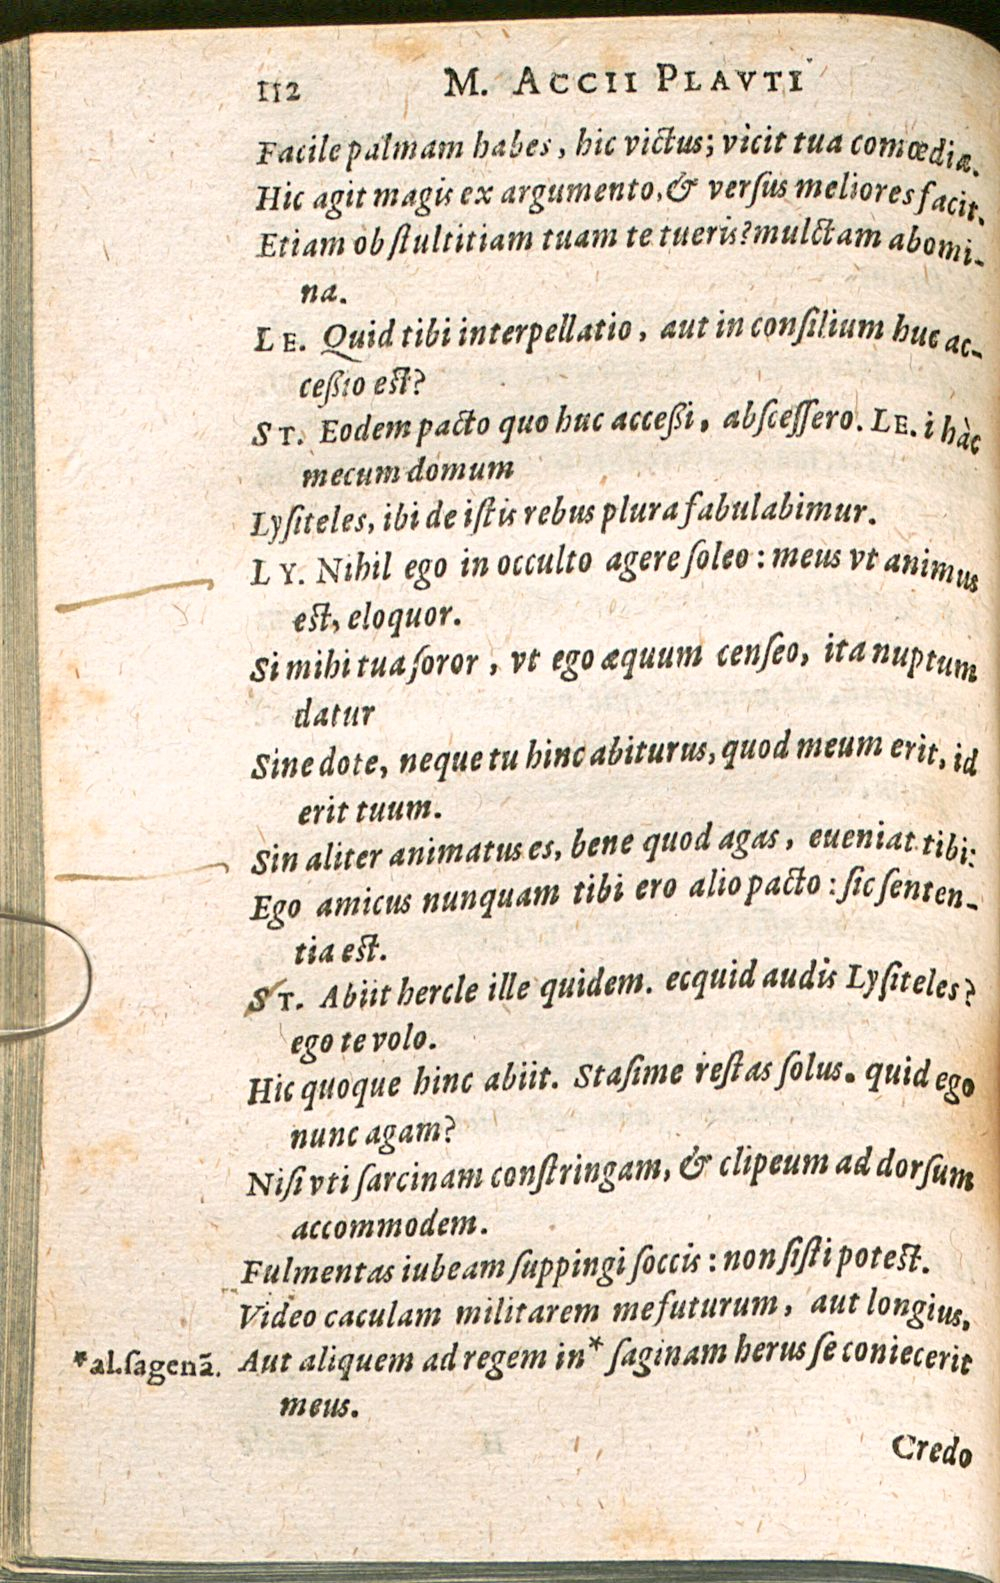 112 M. ACCII PLAVTI
Facile palmam habes, hic victus; vicit tua comœdiæ.
Hic agit magis ex argumento, & verſus meliores facit.
Etiam ob ſtultitiam tuam te tueris? mulctam abomi-
na.
LE. Quid tibi interpellatio, aut in conſilium huc ac-
ceßio eſt?
ST. Eodem pacto quo huc acceßi, abſceſſero. LE. i hàc
mecum domum
Lyſiteles, ibi de iſtis rebus plura fabulabimur.
LY. Nihil ego in occulto agere ſoleo: meus vt animus
eſt, eloquor.
Si mihi tua ſoror, vt ego æquum cenſeo, ita nuptum
datur
Sine dote, neque tu hinc abiturus, quod meum erit, id
erit tuum.
Sin aliter animatus es, bene quod agas, eueniat tibi:
Ego amicus nunquam tibi ero alio pacto: ſic ſenten-
tia eſt.
ST. Abiit hercle ille quidem. ecquid audis Lyſiteles?
ego te volo.
Hic quoque hinc abiit. Staſime reſtas ſolus. quid ego
nunc agam?
Niſi vti ſarcinam conſtringam, & clipeum ad dorſum
accommodem.
Fulmentas iubeam ſuppingi ſoccis: non ſiſti poteſt.
Video caculam militarem me futurum, aut longius,
*al. ſagenā. Aut aliquem ad regem in* ſaginam herus ſe coniecerit
meus.
Credo